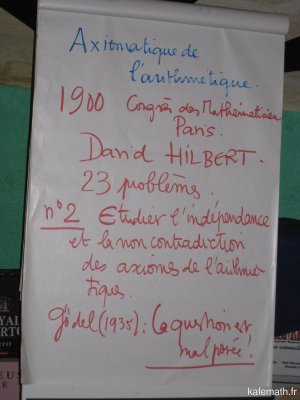 Axiomatique de
l'arithmétique.
1900 Congrès des Mathématiciens
Paris.
David HILBERT.
23 problèmes.
n°2 Etudier l'indépendance
et la non contradiction
des axiomes de l'arithmé-
tiques.
Gödel (1935): La question est
mal posée!
kafemath.fr